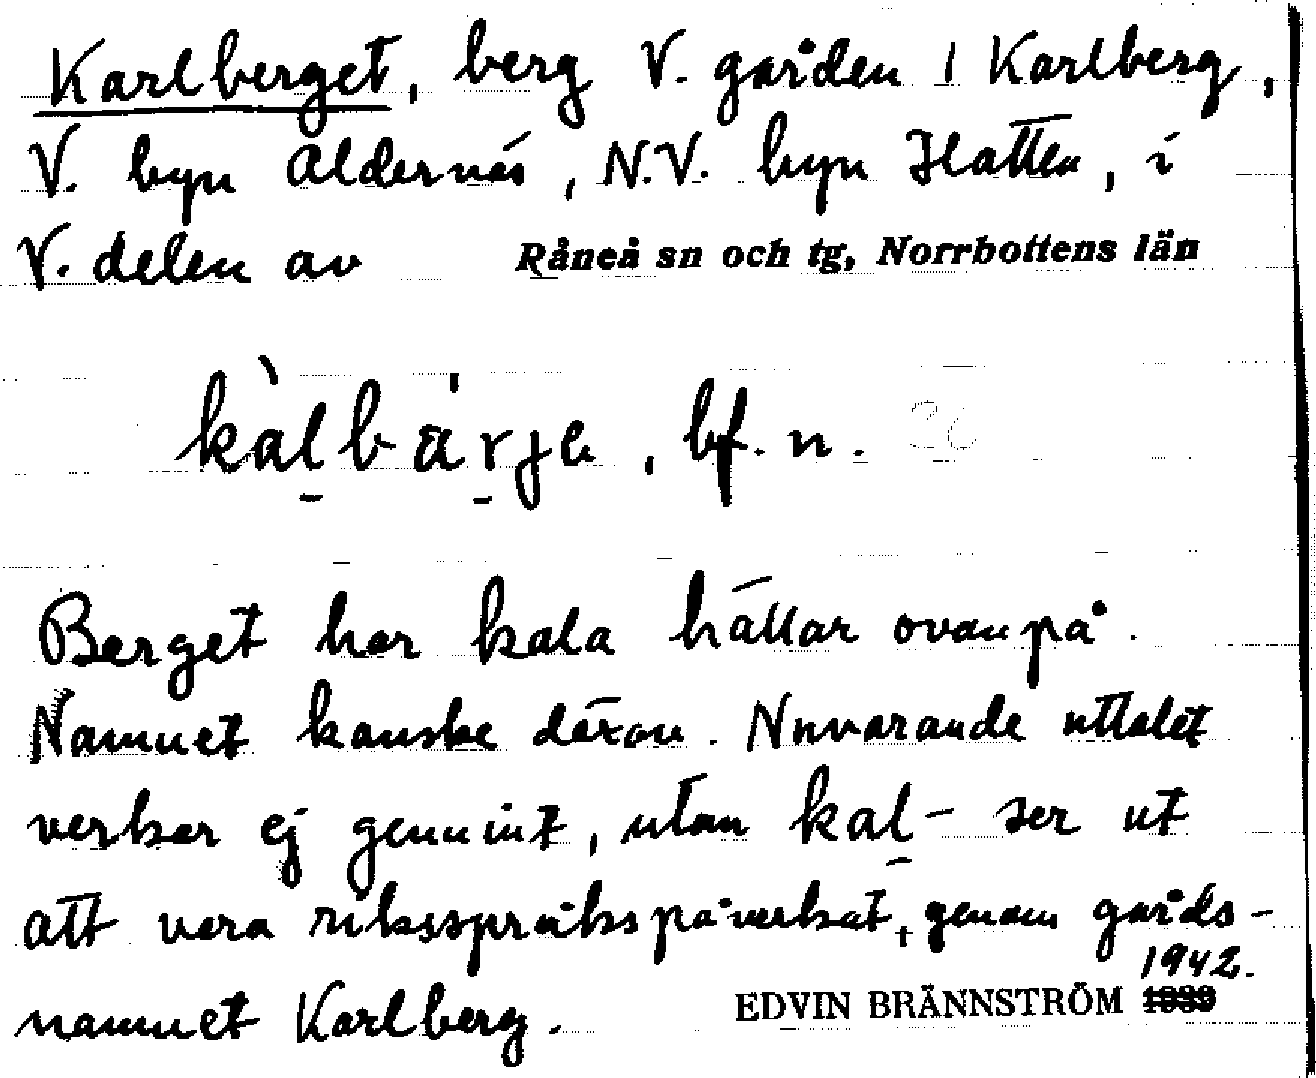 Karlberget, berg V. gården 1 Karlberg,
V. byn Aldernäs, N.V. byn Hatten, i
V. delen av Råneå sn och tg, Norrbottens län
kàl̠bä'r̠je, bf. n.
Berget har kala hällar ovanpå.
Namnet kanske därav. Nuvarande uttalet
verkar ej genuint, utan kal̠- ser ut
att vara riksspråkspåverkat, genom gårds-
namnet Karlberg.
1942.
EDVIN BRÄNNSTRÖM